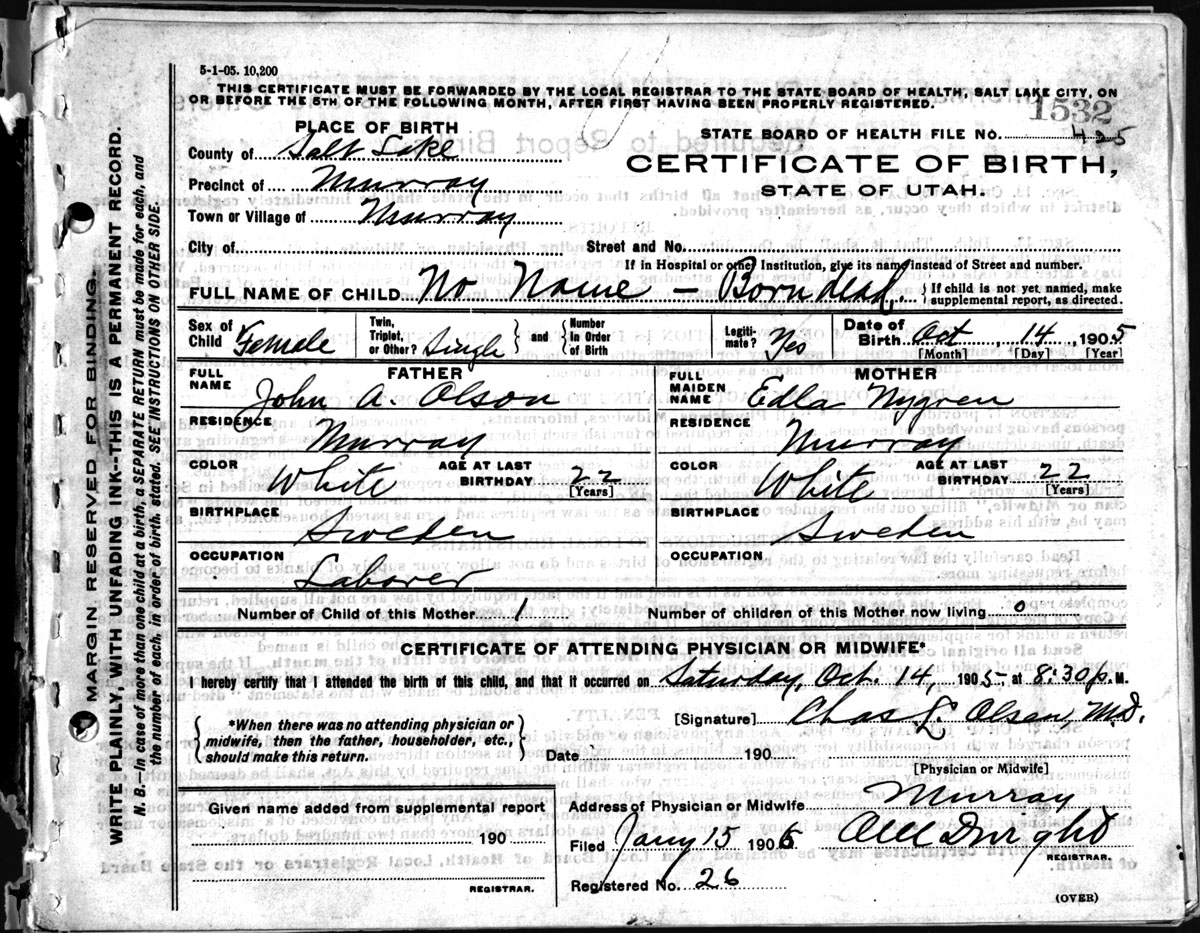 5-1-05. 10,200
THIS CERTIFICATE MUST BE FORWARDED BY THE LOCAL REGISTRAR TO THE STATE BOARD OF HEALTH, SALT LAKE CITY, ON
OR BEFORE THE 5TH OF THE FOLLOWING MONTH, AFTER FIRST HAVING BEEN PROPERLY REGISTERED.
1532
PLACE OF BIRTH
STATE BOARD OF HEALTH FILE NO. 425
County of Salt Lake
CERTIFICATE OF BIRTH,
Precinct of Murray
STATE OF UTAH.
Town or Village of Murray
City of Street and No.
If in Hospital or other Institution, give its name instead of Street and number.
FULL NAME OF CHILD No Name - Born dead. { If child is not yet named, make supplemental report, as directed.
Sex of Child Female Twin, Triplet, or Other? Single } and { Number in Order of Birth Legitimate? Yes Date of Birth Oct 14, 1905
[Month] [Day] [Year]
FATHER MOTHER
FULL NAME John A. Olson FULL MAIDEN NAME Edla Nygren
RESIDENCE Murray RESIDENCE Murray
COLOR White AGE AT LAST BIRTHDAY 22 [Years] COLOR White AGE AT LAST BIRTHDAY 22 [Years]
BIRTHPLACE Sweden BIRTHPLACE Sweden
OCCUPATION Laborer OCCUPATION
Number of Child of this Mother 1 Number of children of this Mother now living 0
CERTIFICATE OF ATTENDING PHYSICIAN OR MIDWIFE*
I hereby certify that I attended the birth of this child, and that it occurred on Saturday, Oct. 14, 1905, at 8:30 p. M.
{ *When there was no attending physician or midwife, then the father, householder, etc., should make this return. }
[Signature] Chas L. Olsen, M.D.
Date 190
[Physician or Midwife]
Given name added from supplemental report
Address of Physician or Midwife Murray
190
Filed Jany 15 1906
REGISTRAR.
REGISTRAR.
Registered No. 26
(OVER)
MARGIN RESERVED FOR BINDING.
WRITE PLAINLY, WITH UNFADING INK--THIS IS A PERMANENT RECORD.
N. B.—In case of more than one child at a birth, a SEPARATE RETURN must be made for each, and
the number of each, in order of birth, stated. SEE INSTRUCTIONS ON OTHER SIDE.